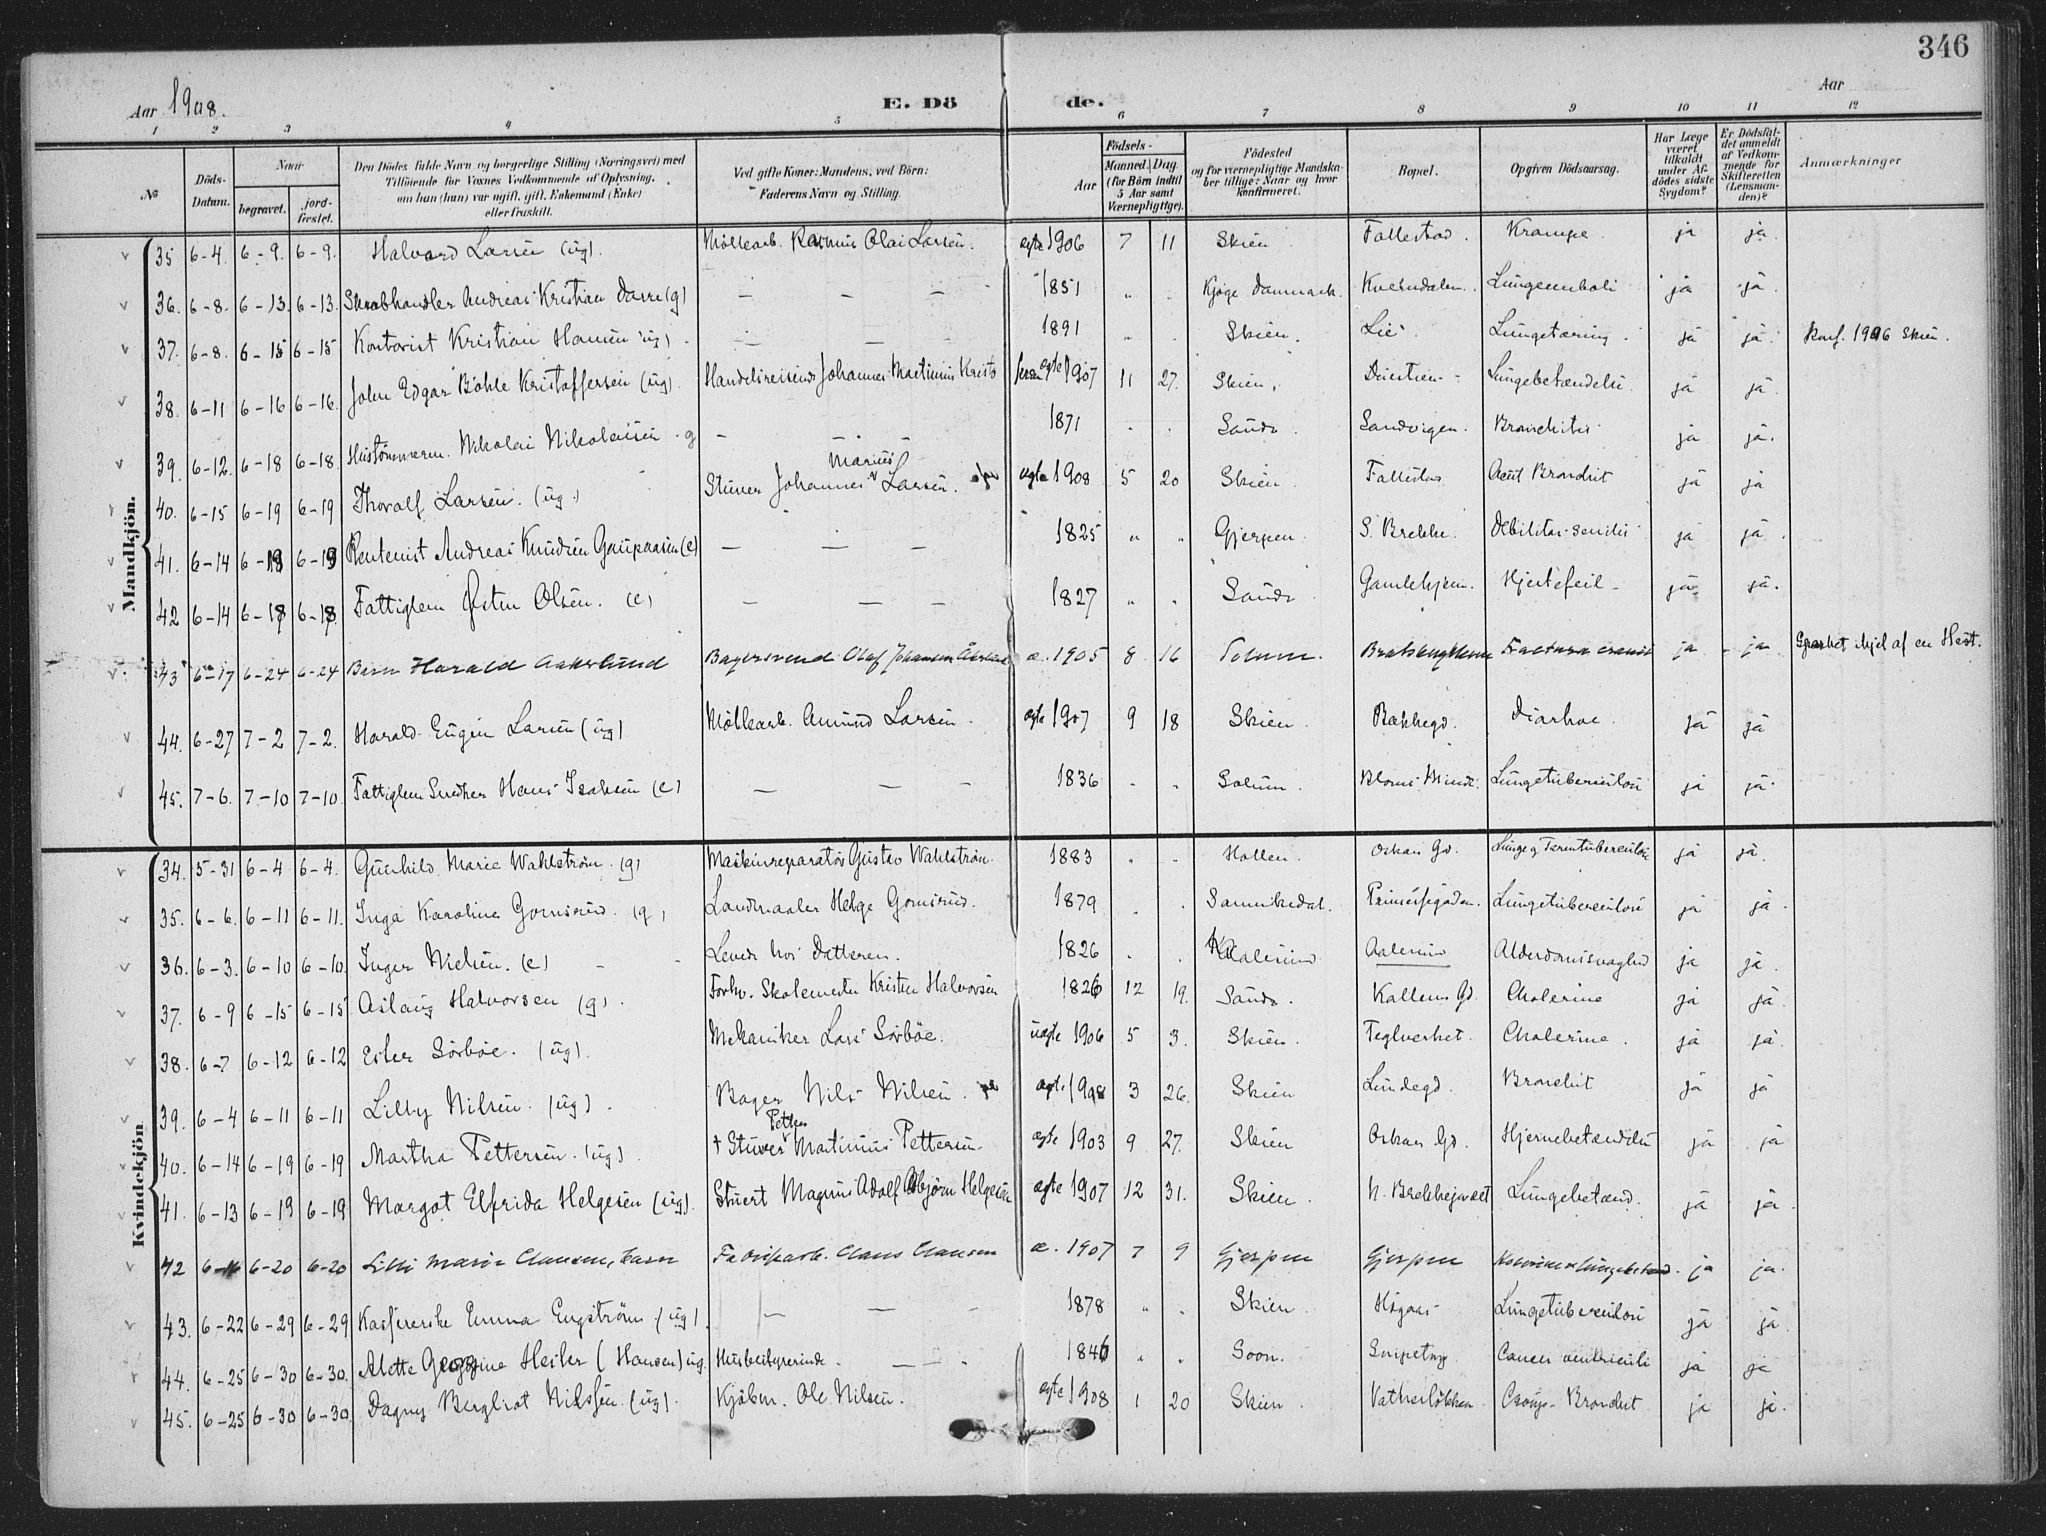 346
Aar 1908.
E. Dö de.
Aar
1 2 3 4 5 6 7 8 9 10 11 12
No
Döds-Datum.
Naar
begravet.
jord-fæstet.
Den Dödes fulde Navn og borgerlige Stilling (Næringsvei) med
Tilföiende for Voxnes Vedkommende af Oplysning,
om han (hun) var ugift, gift, Enkemand (Enke)
eller fraskilt.
Ved gifte Koner: Mandens, ved Börn:
Faderens Navn og Stilling.
Födsels-
Aar
Maaned. Dag.
(for Börn indtil
5 Aar samt
Værnepligtige).
Födested
og for værnepligtige Mandska-
ber tillige: Naar og hvor
konfirmeret.
Bopæl.
Opgiven Dödsaarsag.
Har Læge
været
tilkaldt
under Af-
dödes sidste
Sygdom?
Er Dödsfal-
det anmeldt
af Vedkom-
mende for
Skifteretten
(Lensman-
den)?
Anmærkninger
Mandkjön.
35 6-4. 6-9. 6-9. Halvard Larsen (ug). Möllearb. Rasmus Olai Larsen. ægte 1906 7 11 Skien Follestad. Krampe. ja ja.
36. 6-8. 6-13. 6-13. Skrabhandler Andreas Kristian Darre (g) — — — 1851 " " Kjøge Danmark. Lungeemboli ja ja.
37. 6-8. 6-15 6-15 Kontorist Kristian Hansen (ug) — — — 1891 " " Skien. Lie. Lungetæring. ja ja. Konf. 1906 Skien.
38. 6-11 6-16 6-16. John Edgar Bøhle Kristoffersen (ug). Handelsreisende Johannes Martinius Kristoffersen ægte 1907 11 27. Skien. Lungebetændelse. ja ja.
39. 6-12. 6-18 6-18. Hustømmerm. Nikolai Nikolaisen. g — — — 1871 " " Sande. Sandvigen. Bronchitis. ja ja.
40. 6-15 6-19 6-19 Thoralf Larsen. (ug.) Stuver Johannes Marius Larsen. ægte 1908 5 20 Skien. Follestad Acut Bronchit ja ja
41. 6-14 6-19 6-19 Rentenist Andreas Knudsen Gaupaasen (e) — — — 1825 " " Gjerpen. S. Brekke. Debilitas senilis ja ja.
42 6-14 6-18 6-18. Fattiglem Østen Olsen. (e) — — — 1827 " " Sande Gamlehjem. Hjertefeil ja ja.
43 6-17 6-24 6-24 Barn Harald Aakerlund Bagersvend Olaf Johannes æ. 1905 8 16 Solum. Fractura cranii ja ja Sparket ihjel af en Hest.
44. 6-27 7-2 7-2. Harald Eugen Larsen (ug) Möllearb. Amund Larsen. ægte 1907 9 18 Skien. Bakkegd. Diarhoe. ja ja
45. 7-6. 7-10 7-10. Fattiglem Snedker Hans Isaksen (e) — — — 1836 " " Solum. Bloms Minde. Lungetuberculose ja ja.
Kvindekjön
34. 5-31 6-4 6-4. Gunhild Marie Wahlström. (g) Maskinreparatör Gustav Wahlström. 1883 " " Hollen. Oskars Gd. Lunge og Tarmtuberculose ja ja.
35. 6-6. 6-11 6-11. Inga Karoline Gomsrud. (g) Landmaaler Helge Gomsrud. 1879 " " Sannikedal. Prinsessegaden. Lungetuberculose ja ja.
36. 6-3. 6-10 6-10. Inger Nielsen. (e) Leved hos Datteren. 1826 " " Aalesund Alderdomssvaghed ja ja.
37. 6-9 6-15 6-15 Aslaug Halvorsen (g). Forhv. Skolemester Kristen Halvorsen 1826 12 19. Sande. Kallens Gd. Cholerine ja ja.
38. 6-7 6-12 6-12 Ester Sörböe. (ug). Mekaniker Lars Sörböe. uægte 1906 5 3. Skien. Teglverket. Cholerine. ja ja.
39. 6-4 6-11 6-11 Lilly Nilsen. (ug). Bager Nils Nilsen. ægte 1908 3 26. Skien Lundegd. Bronchit ja ja
40. 6-14 6-19 6-19 Martha Pettersen. (ug). † Stuver Petter Martinius Pettersen ægte 1903 9 27. Skien Oskars Gd. Hjernebetændelse ja ja
41. 6-13 6-19 6-19 Margot Elfrida Helgesen (ug). Stuert Magnus Adolf Asbjörn Helgesen ægte 1907 12 31. Skien. N. Brekkejordet Lungebetænd. ja ja.
42 6-16 6-20 6-20 Lilli Marie Clausen, barn Fabrikarb. Claus Clausen æ. 1907 7 9 Gjerpen Gjerpen ja ja.
43. 6-22 6-29 6-29 Kassererske Emma Engström (ug). — — — 1878 " " Skien. Lungetuberculose ja ja.
44. 6-25 6-30 6-30. Alette Georgine Hesler (Hansen) ug. Husbestyrerinde. — 1846 " " Soon. Snipetorp. Cancer ventriculi ja ja
45. 6-25 6-30 6-30. Dagny Bergliot Nilssen. (ug). Kjöbm. Ole Nilsen. ægte 1908 1 20 Skien. Croup-Bronchit ja ja.